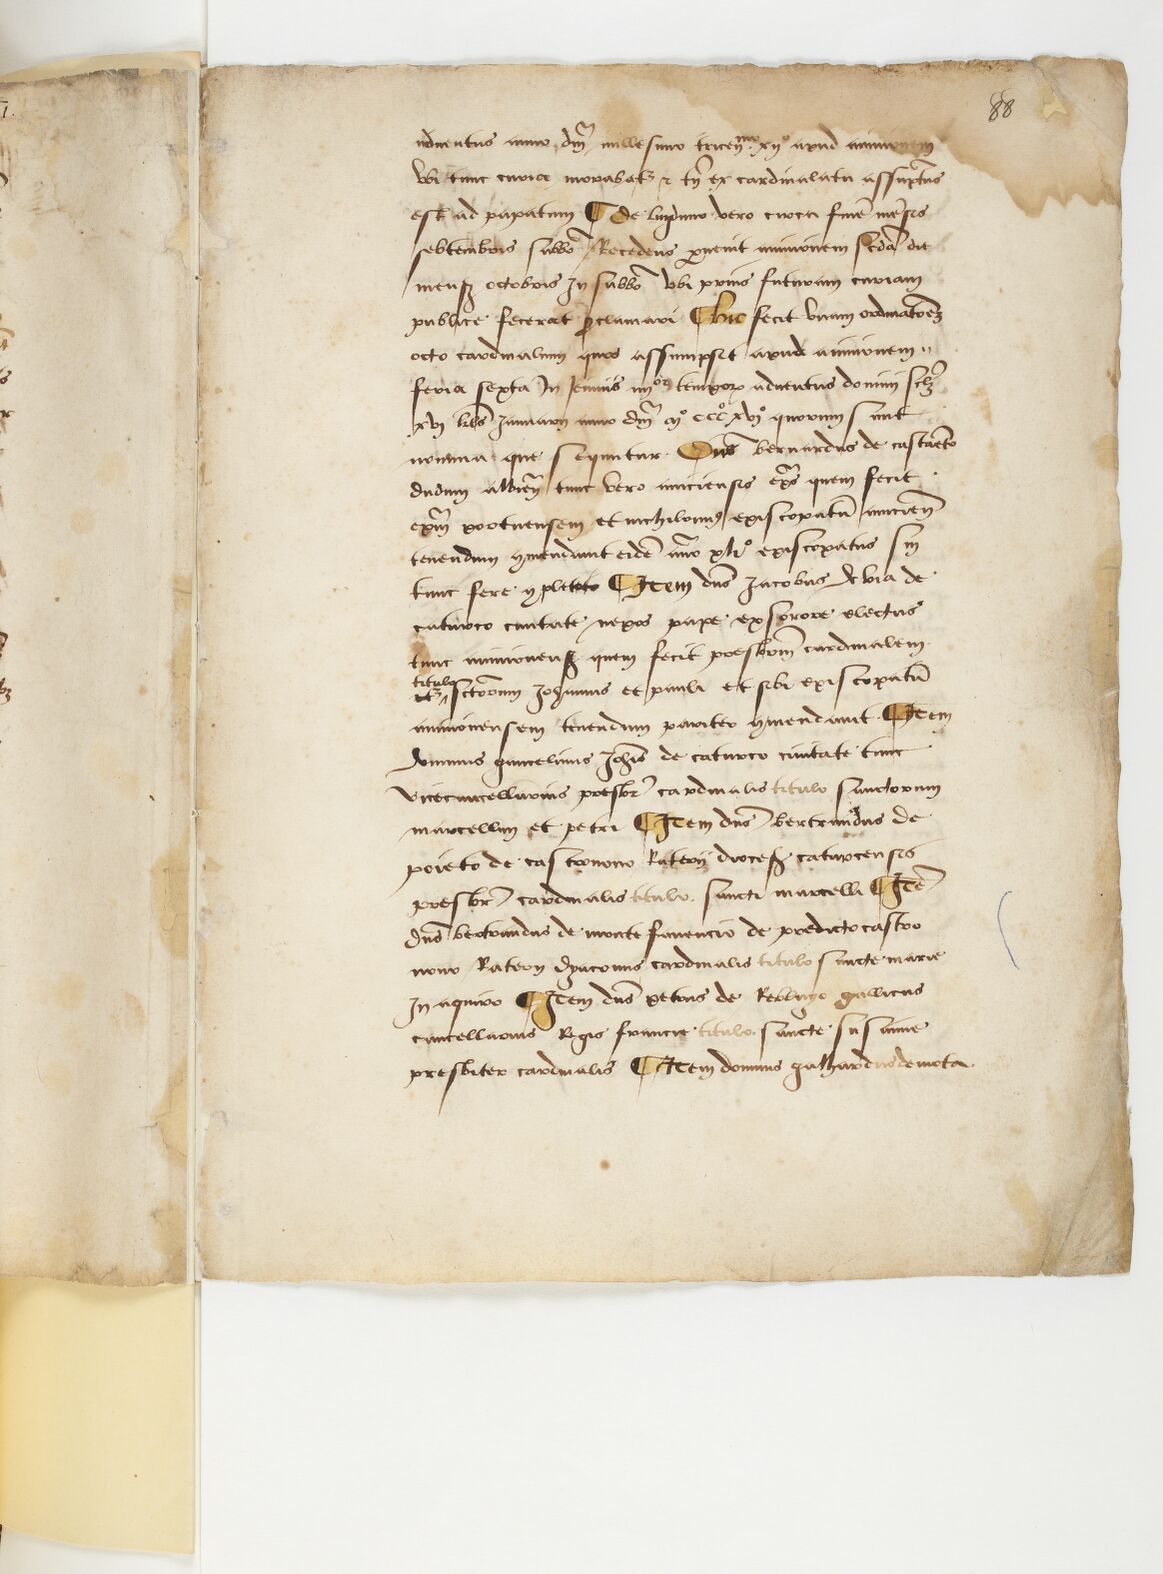 88
adventus anno dnī millesimo tricenmo. xijo apud avinionem
vbi tunc curia morabatz et tn̄ ex cardinalatu assūptus
est ad papatum ¶ de lugduno vero circa finē mēsis
septembris subbō Recedens pervenit avinionem secdā die
mensz octobris In subbō vbi prius futuram curiam
publice fecerat p̄clamari ¶ hic fecit vnam ordinatōez
octo cardinalium quos assumpsit apud avinionem
feria sexta In Jeiuniis iiijor tempor adventus domini sclz
xvj kls Januarii anno dnī mo cccoxvjo quorum sunt
nomina que sequntur. Dns bernardus de castaneto
dudum albien̄ tunc vero aniciensis ep̄s quem fecit
ep̄m portuensem et nichilominus episcopatū anicien̄
tenendum 9mendavit eidē āno xlo episcopatus sui
tunc fere 9pleto ¶ Item dns Jacobus de via de
caturco civitate nepos pape ex sorore electus
tunc avinionensz quem fecit presbrm̄ cardinalem
titulo
sctorum Johannis et pauli et sibi episcopatū
avinionensem tenendum pariter 9mendavit. ¶ Item
dominus gaucelinus Johīs de caturco civitate tunc
vicecancellarius presbr cardinalis titulo sanctorum
marcellini et petri ¶ Item dns bertrandus de
poieto de castronovo Raterii diocesz caturcensis
presbr cardinalis titulo. sancti marcelli ¶ Itē
dns bertrandus de monte faventio de predicto castro
novo Raterii dyaconus cardinalis titulo sancte marie
In aquiro ¶ Item dns petrus de Reblayo gallicus
cancellarius Regis francie titulo. sancte susanne
presbiter cardinalis ¶ Item dominus galhardus de mota